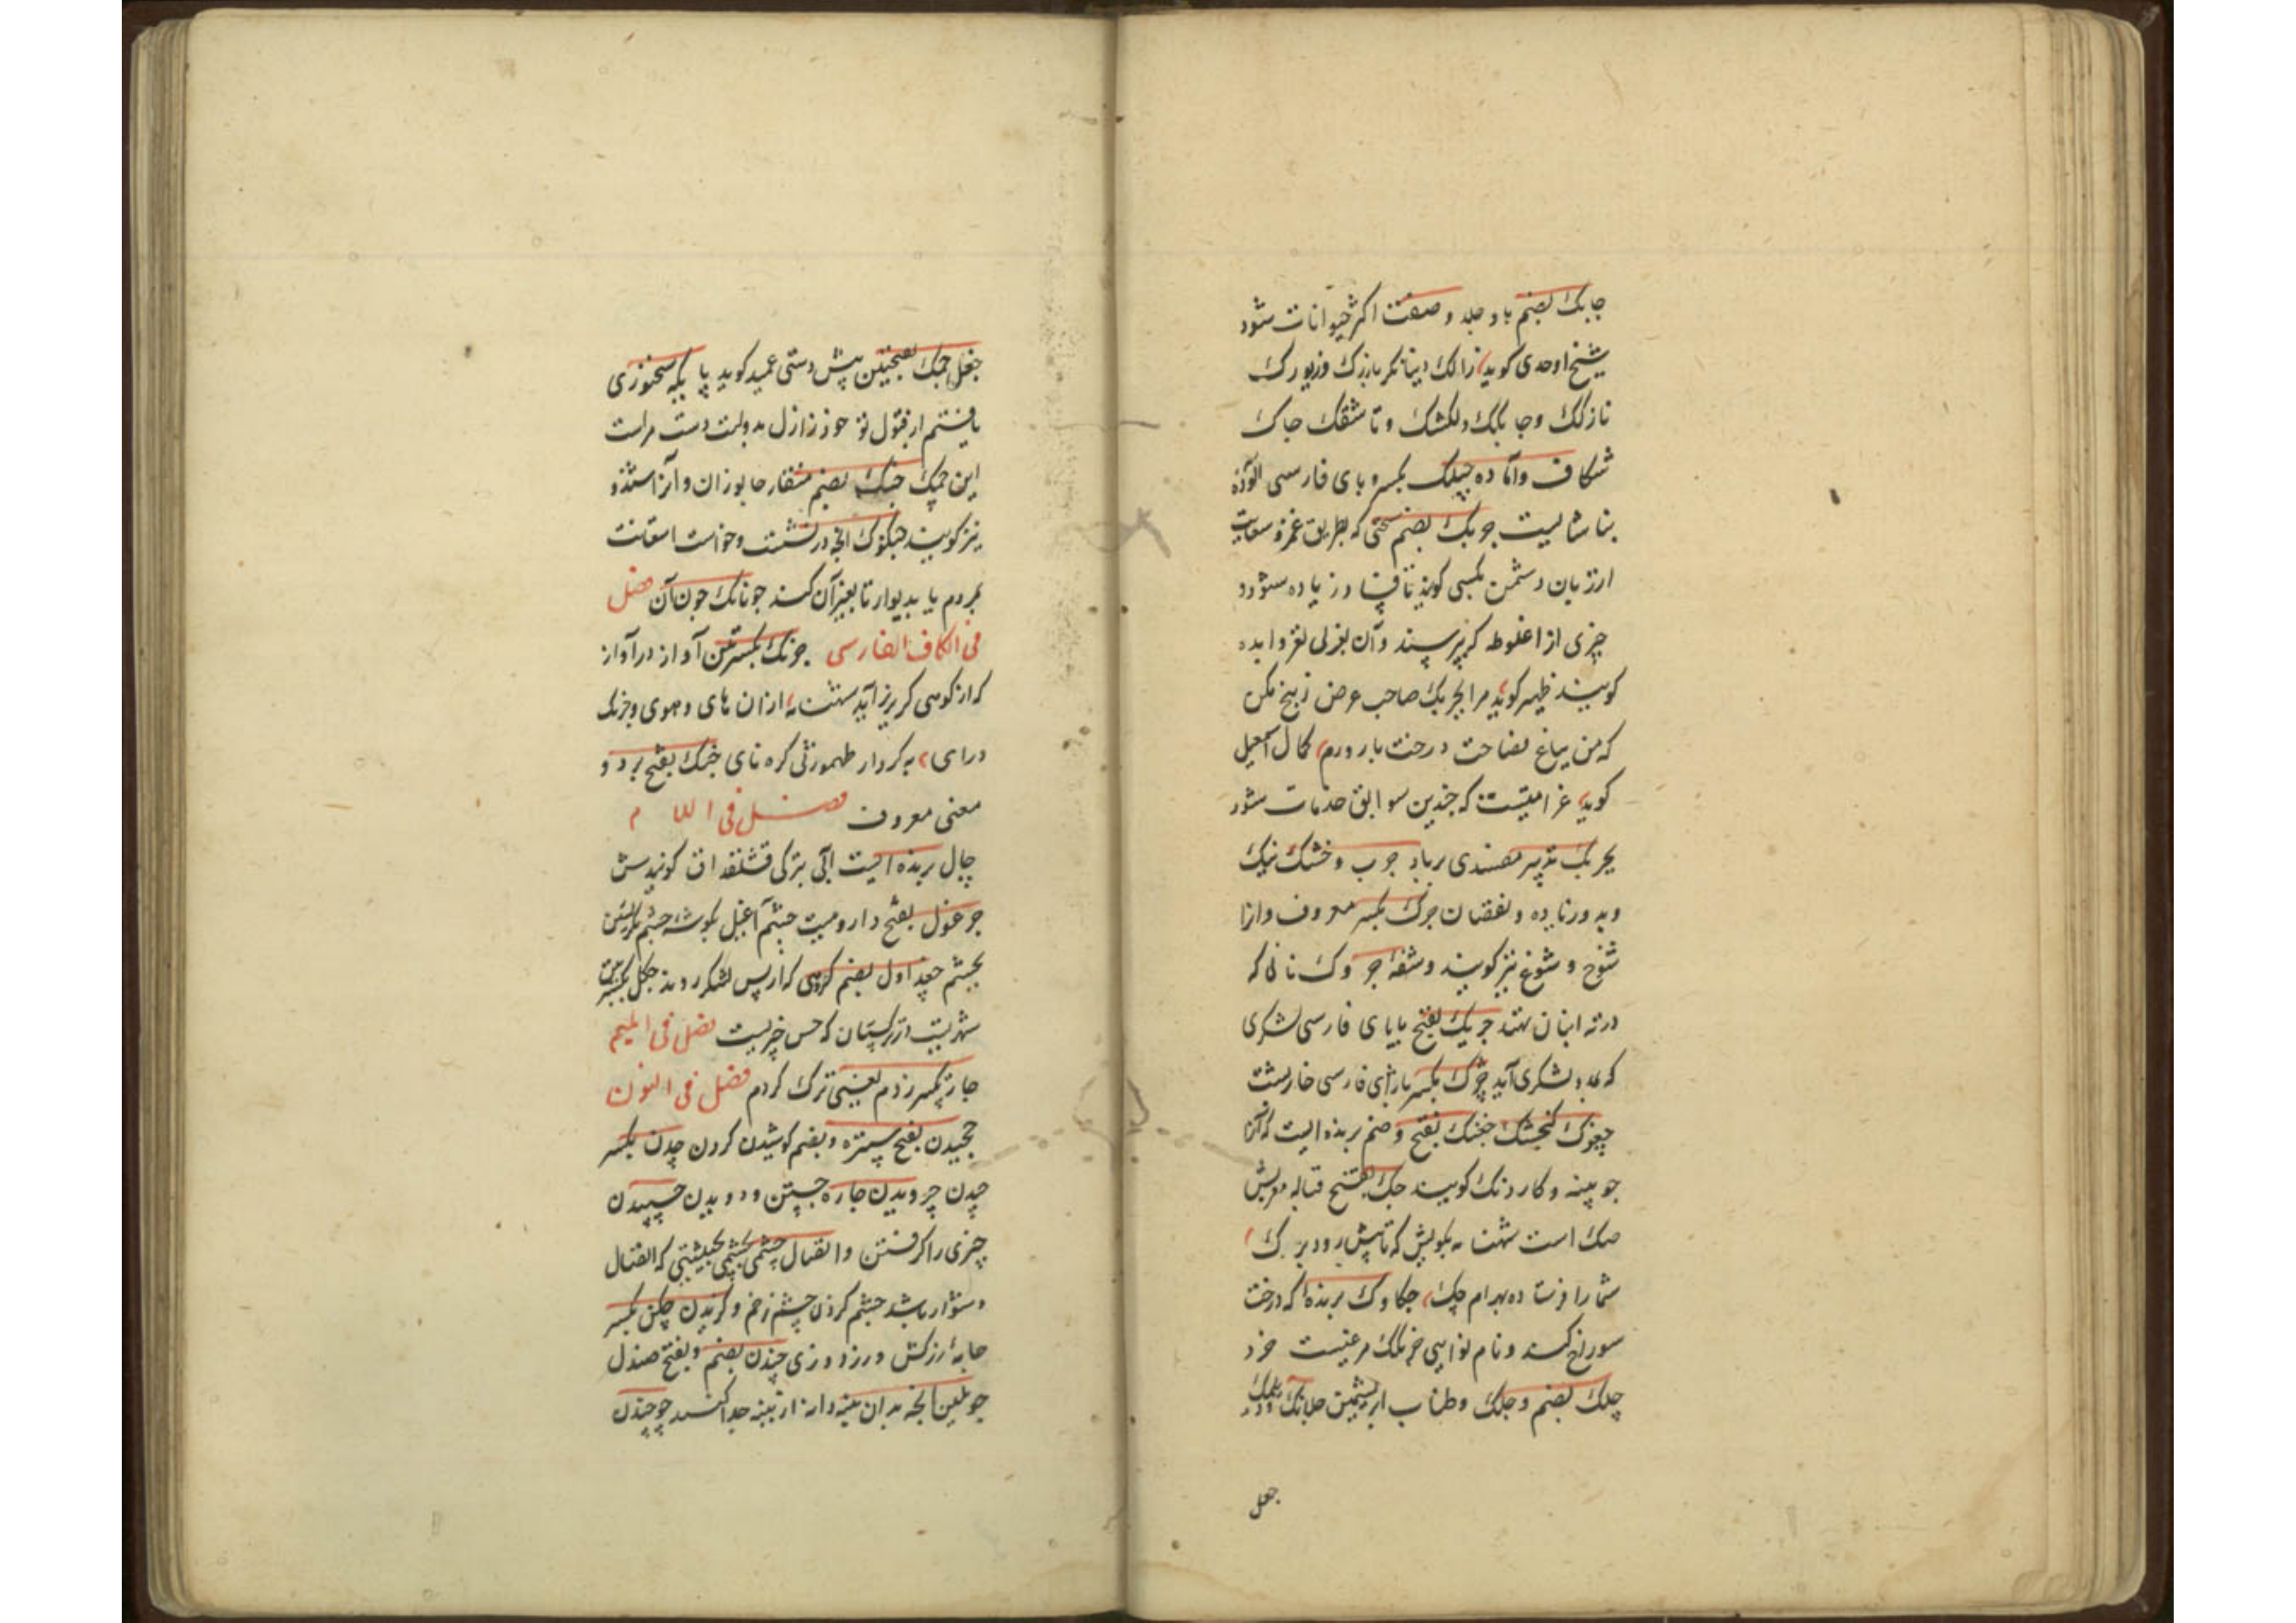 چابک بضم با و جلد و صفت اکثر حیوانات شود
شیخ اوحدی کوید زالک دینا نکر بازیرک وزیورک
نازلک و چابلک دلکشک و تا شقک چاک
شکاف و آماده چپلک بکسر و بای فارسی آلوده
بنا شایست چوبک بضم سخنی که بطریق غمز و سعایت
از زبان دشمن بکسی کویند تا فساد زیاده شود و
چیزی از اغلوطه که پرسند و آن بغزلی لغز و ابده
کویند ظهیر کوید مرا بچربک صاحب غرض ز بیخ مکن
که من بباغ فصاحت درخت بارورم کمال اسمعیل
کوید غرامتیست که چندین سوابق خدمات شود
بچربک تدبیر مفسدی برباد چرب و خشک نیک
و بد و زیاده و نقصان چرک بکسر معروف و آنرا
شوخ و شوغ نیز کویند و شفه چروک نانی که
در ته انبان نهند چریک بفتح بایای فارسی لشکری
که بمدد لشکری آید چژک بکسر بازای فارسی خارپشت
چغوک کنجشک چغنک بفتح و ضم پرنده ایست که آنرا
چوبینه و کاردنک کویند چک بفتح قباله معربش
صک است شهنامه بکویش که تا پیش رود بزرک
شما را فرستاده بهرام چک چکاوک پرنده که درخت
سوراخ کند و نام نوایی مرغیست خرد
چلک بضم و چلک وطناب ابریشمین
جغل
جغل چمک بفتحتین پیش دستی عمید کوید پا بکه سخنوری
یافتم از قبول تو خود ز ازل بدولت دست مراست
این چمک چنک بضم منقار جانوران و آنرا
نیز کویند چنکوک انچه در نشست و خواست استعانت
بمردم یا بدیوار تا بغیر آن کند چونانک چون آن فصل
فی الکاف الفارسی چرنک بکسرتین آواز درآواز
که از کوهی کریز آید شهنامه از آن های و هوی و چرنک
درای بکردار طهمورثی کره نای چنک بفتح بر دو
معنی معروف فصل فی اللام
چال پرنده ایست ابی بترکی قشلقداق کویندش
چرغول بفتح دارو میست چشم آغیل بکوشه چشم نکریستن
بخشم چغداول بضم کروهی که از پس لشکر روند چکل بکسرتین
شهریست از ترکستان که حسن خیزست فصل فی المیم
چار تکبیر زدم یعنی ترک کردم فصل فی النون
چخیدن بفتح ستیزه و بضم کوشیدن کردن چدن بکسر
چیدن چرویدن چاره جستن و دویدن چسپیدن
چیزی را کرفتن و انتقال چشمی بچشمی که انتقال
دشوار باشد چشم کردن چشم زخم و کزیدن چکن بکسر
جامه زرکش و رزدوزی چندن بضم و بفتح صندل
چوبلین انچه بدان پنبه دانه از پنبه جدا کنند چوخیدن